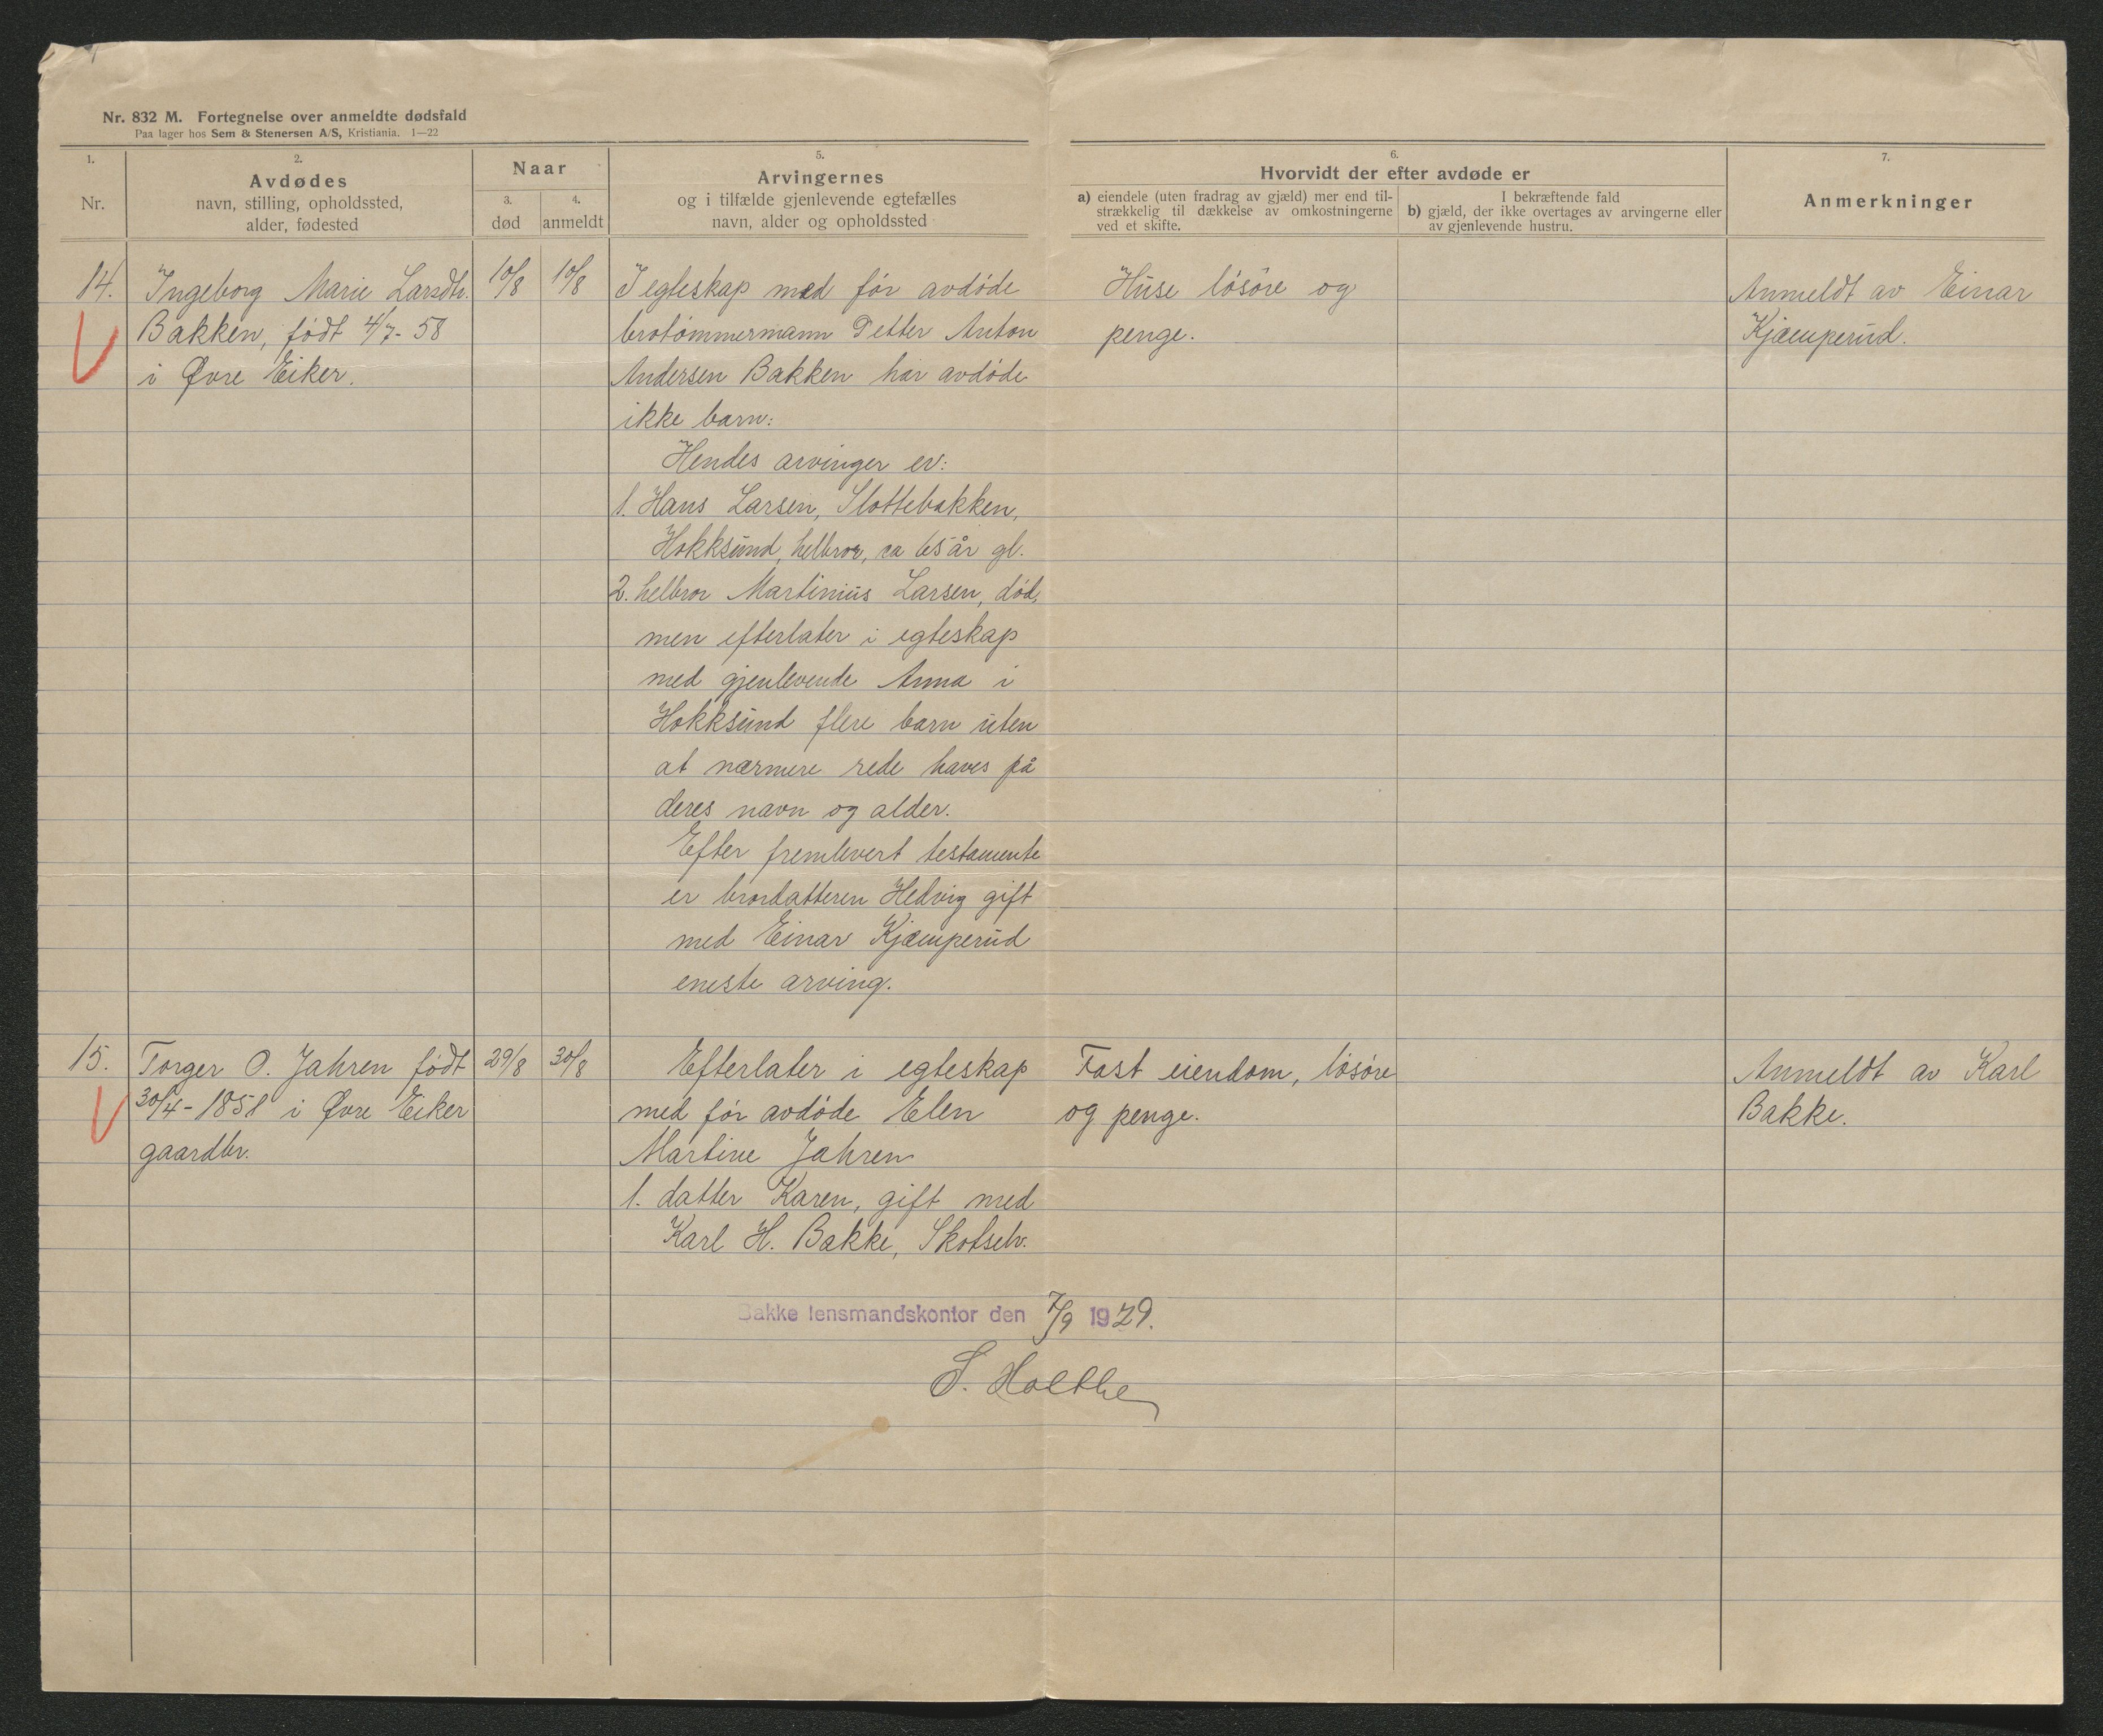 Nr. 832 M. Fortegnelse over anmeldte dødsfald
Paa lager hos Sem & Stenersen A/S, Kristiania. 1—22
1.
Nr.
2.
Avdødes
navn, stilling, opholdssted,
alder, fødested
Naar
3.
død
4.
anmeldt
5.
Arvingernes
og i tilfælde gjenlevende egtefælles
navn, alder og opholdssted
6.
Hvorvidt der efter avdøde er
a) eiendele (uten fradrag av gjæld) mer end til-
strækkelig til dækkelse av omkostningerne
ved et skifte.
I bekræftende fald
b) gjæld, der ikke overtages av arvingerne eller
av gjenlevende hustru.
7.
Anmerkninger
14.
Ingeborg Marie Larsdtr.
Bakken, født 4/7-58
i Øvre Eiker.
10/8
10/8
I egteskap med før avdøde
brotømmermann Petter Anton
Andersen Bakken har avdøde
ikke barn:
Hendes arvinger er:
1. Hans Larsen, Slottebakken,
Hokksund, helbror, ca 65 år gl.
2. helbror Martinius Larsen, død,
men efterlater i egteskap
med gjenlevende Anna i
Hokksund flere barn uten
at nærmere rede haves på
deres navn og alder.
Efter fremlevert testamente
er brordatteren Hedvig gift
med Einar Kjæmperud
eneste arving.
Huse løsøre og
penge.
Anmeldt av Einar
Kjæmperud.
15.
Torger O. Jahren født
30/4-1858 i Øvre Eiker
gaardbr.
29/8
30/8
Efterlater i egteskap
med før avdøde Elen
Martine Jahren
1. datter Karen, gift med
Karl H. Bakke, Skotselv.
Fast eiendom, løsøre
og penge.
Anmeldt av Karl
Bakke.
Bakke lensmandskontor den 7/9 1929.
S. Holthe